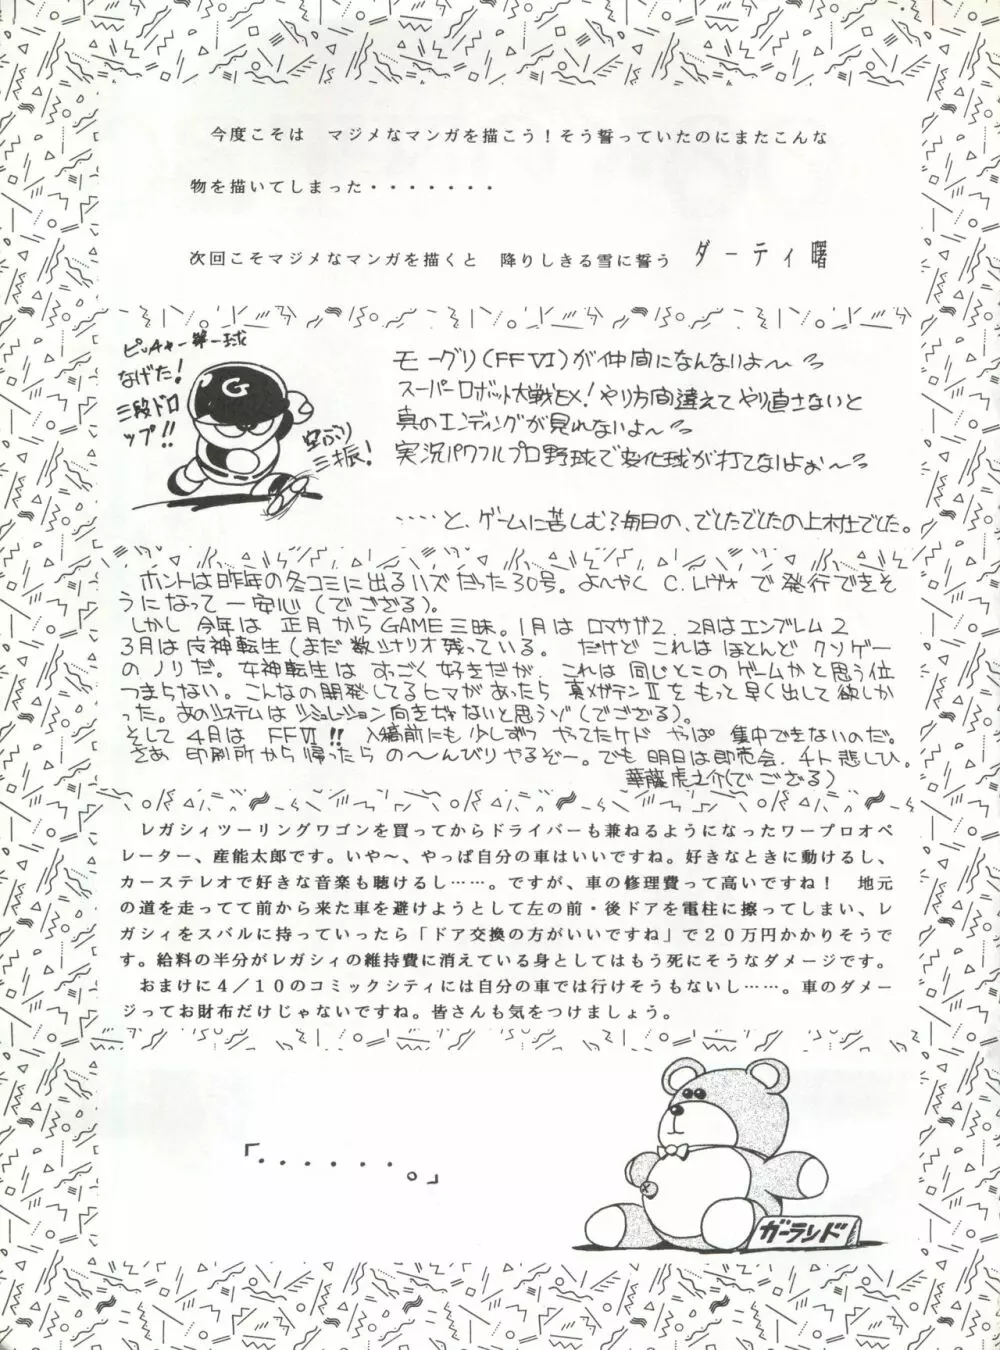 今度こそは　マジメなマンガを描こう！そう誓っていたのにまたこんな
物を描いてしまった・・・・・・・
次回こそマジメなマンガを描くと　降りしきる雪に誓う　ダーティ曙
ピッチャー第一球
なげた！
三段ドロ
ップ!!
G
空ぶり
三振！
モーグリ(FFⅥ)が仲間になんないよ〜
スーパーロボット大戦EX！やり方間違えてやり直さないと
真のエンディングが見れないよ〜
実況パワフルプロ野球で変化球が打てないよぉ〜
‥‥と、ゲームに苦しむ？毎日の、でしたでしたの上村士でした。
ホントは昨年の冬コミに出るハズだった30号。よーやく C.レヴォ で 発行できそ
うになって一安心（でござる）。
しかし 今年は 正月からGAME三昧。1月は ロマサガ2、2月はエンブレム2
3月は女神転生（まだ数シナリオ残っている。 だけど これは ほとんど クソゲー
の ノリ だ。女神転生は すっごく 好きだが、これは 同じとこの ゲームかと 思う位
つまらない。こんなの開発してるヒマがあったら 真メガテンⅡを もっと早く出して 欲しか
った。あのシステムは シミュレーション向きぢゃないと思うゾ（でござる）。
そして 4月は FFⅥ!! 入稿前にも少しずつ やってたケド やっぱ 集中できないのだ。
さあ 印刷所から帰ったら の〜んびりやるぞー。でも 明日は即売会、チト 悲しひ。
華藤虎之介（でござる）
レガシィツーリングワゴンを買ってからドライバーも兼ねるようになったワープロオペ
レーター、産能太郎です。いや〜、やっぱ自分の車はいいですね。好きなときに動けるし、
カーステレオで好きな音楽も聴けるし……。ですが、車の修理費って高いですね！　地元
の道を走ってて前から来た車を避けようとして左の前・後ドアを電柱に擦ってしまい、レ
ガシィをスバルに持っていったら「ドア交換の方がいいですね」で２０万円かかりそうで
す。給料の半分がレガシィの維持費に消えている身としてはもう死にそうなダメージです。
おまけに４／１０のコミックシティには自分の車では行けそうもないし……。車のダメー
ジってお財布だけじゃないですね。皆さんも気をつけましょう。
「・・・・・・・。」
ガーランド